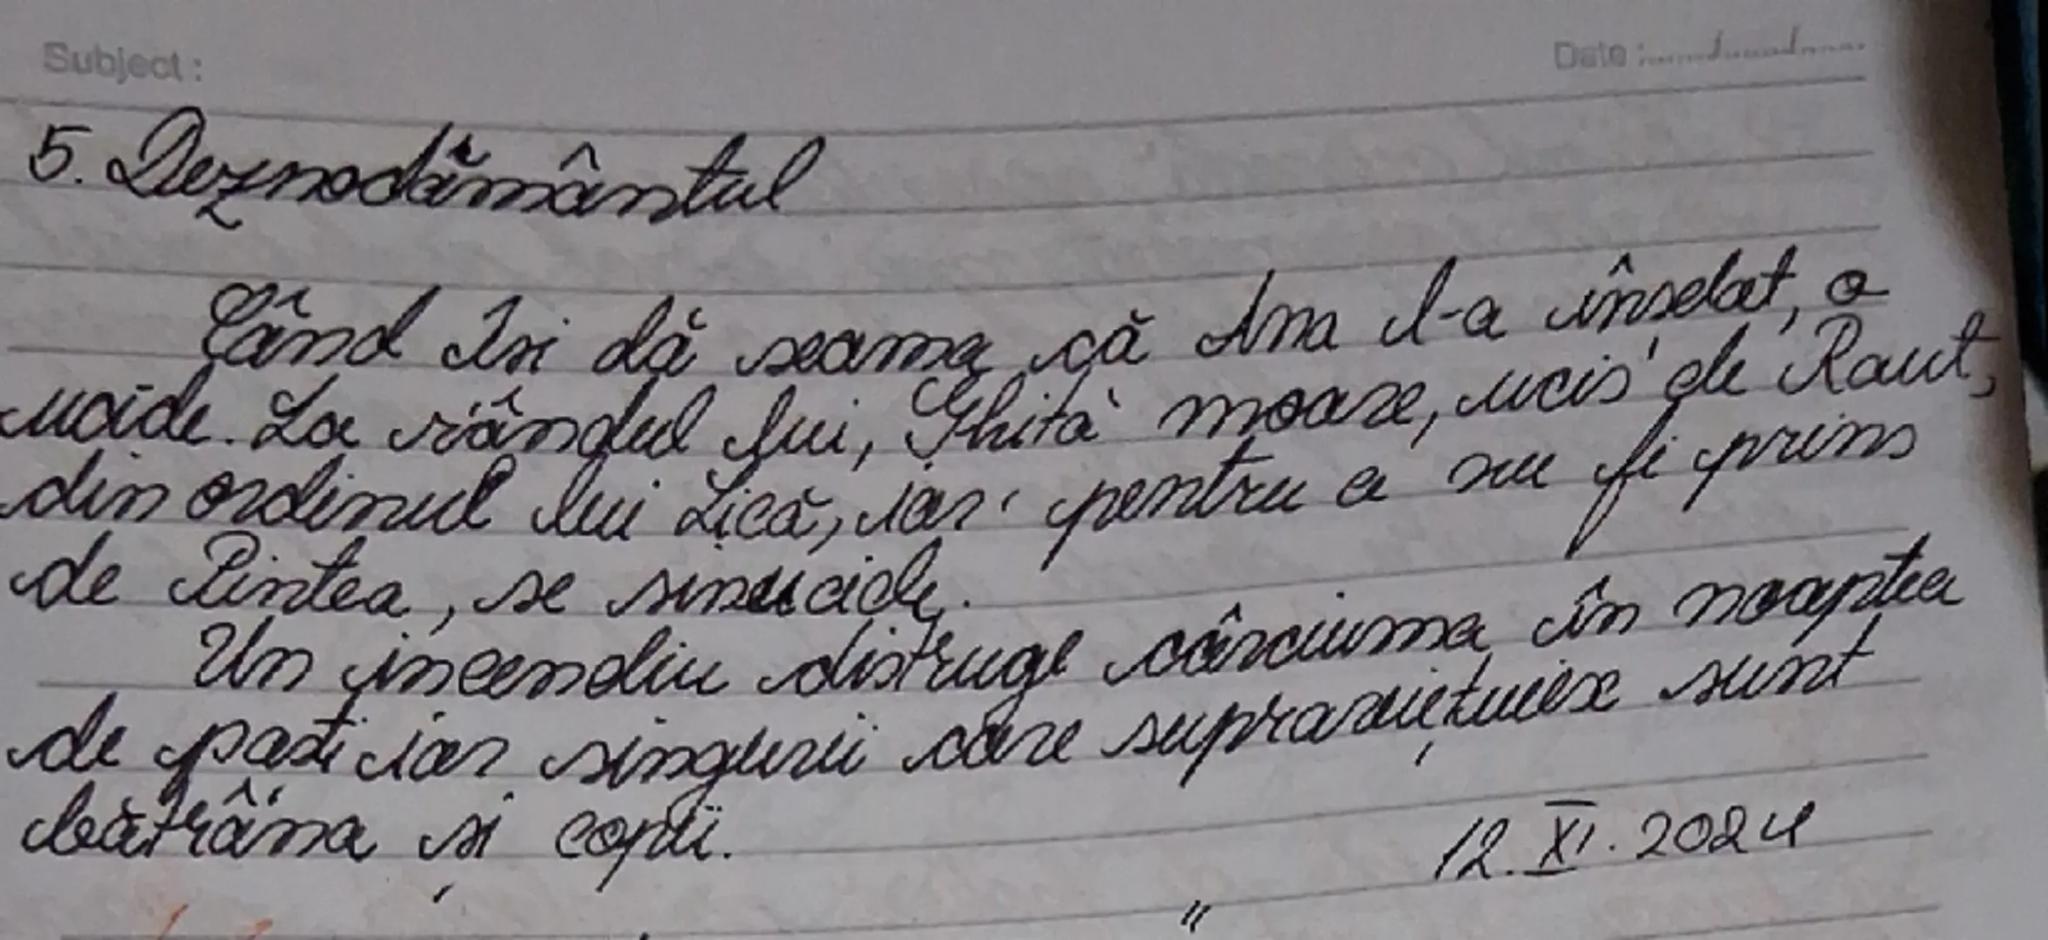 Subject :
Date :
5. Deznodământul
Când Isi dă seama că Ana l-a înșelat, o
ucide. La rândul lui, Ghiță moare, ucis de Raut,
din ordinul lui Lică, iar pentru a nu fi prins
de Pintea, se sinucide.
Un incendiu distruge cârciuma în noaptea
de paști iar singurii care supraviețuiesc sunt
bătrâna și copii.
12. XI. 2024